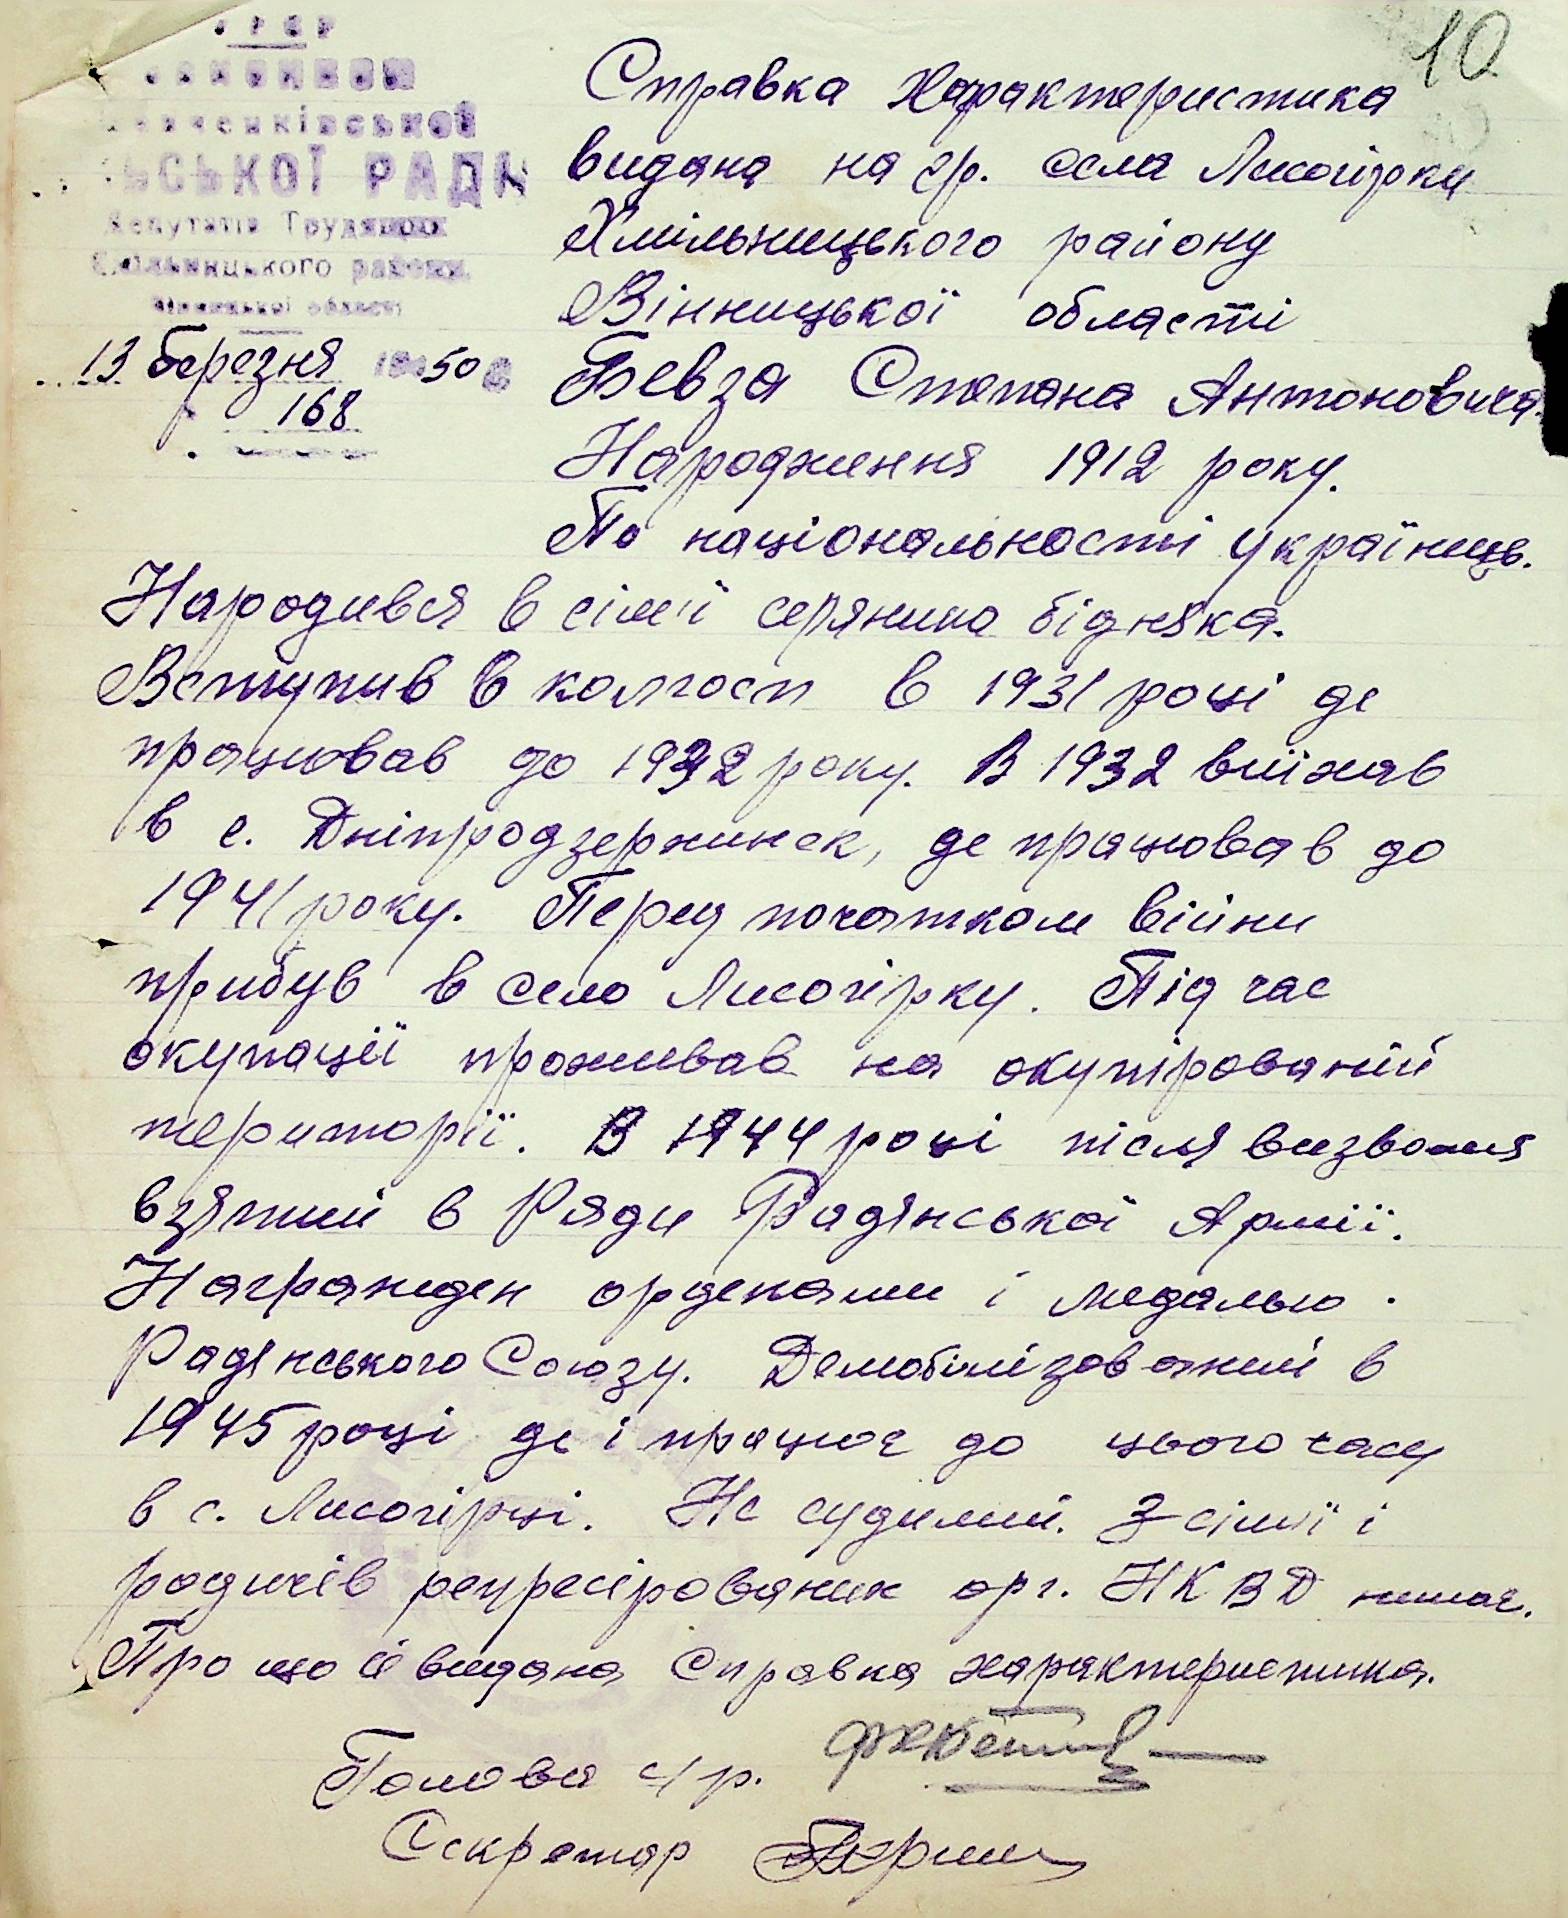 10
УРСР
ВИКОНКОМ
СЬКОЇ РАДИ
Депутатів Трудящих
Хмільницького району
Вінницької області
13 березня 1950 р
168
Справка Характеристика
видана на гр. села Лисогірки
Хмільницького району
Вінницької області
Бевза Степана Антоновича.
Народження 1912 року.
По національності українець.
Народився в сімї селянина бідняка.
Вступив в колгосп в 1931 році де
працював до 1932 року. В 1932 виїхав
в с. Дніпродзержинск, де працював до
1941 року. Перед початком війни
прибув в село Лисогірку. Під час
окупації проживав на окупірованій
територіі. В 1944 році після визволня
взятий в Ряди Радянської Армії.
Награжден орденами і медалью.
Радянського Союзу. Демобілізований в
1945 році де і працює до цього часу
в с. Лисогірці. Не судимий. З сімї і
родичів репресірованих орг. НКВД немає.
Про що й видана Справка характеристика.
Голова с/р.
Секретар